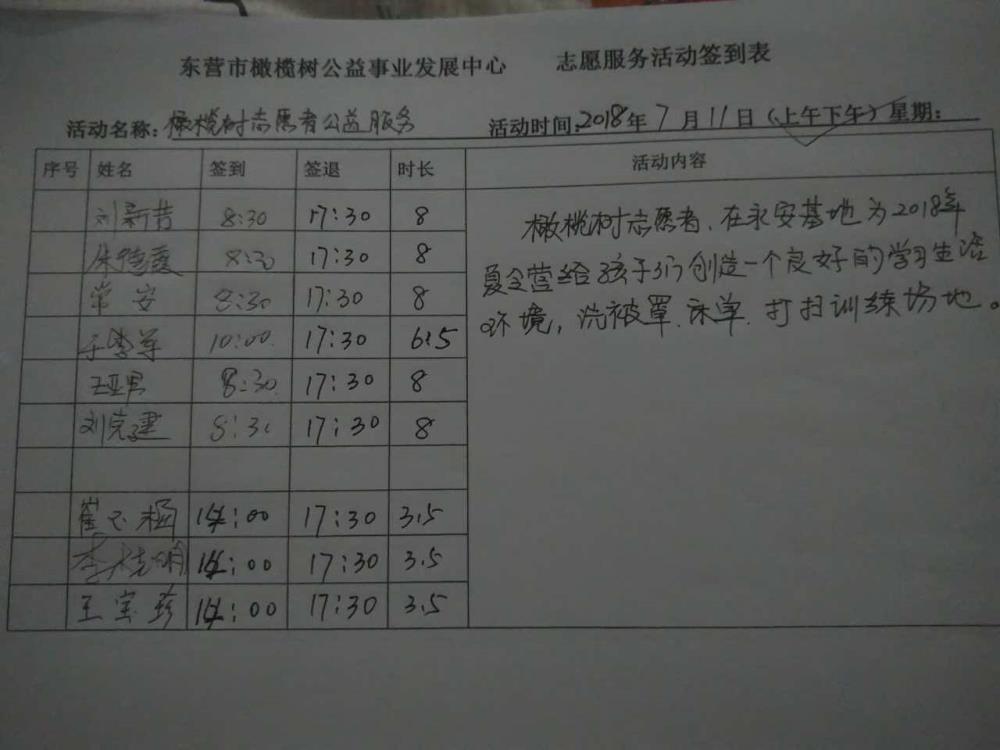 东营市橄榄树公益事业发展中心 志愿服务活动签到表
活动名称：橄榄树志愿者公益服务 活动时间：2018年7月11日（上午下午）星期：
序号 姓名 签到 签退 时长 活动内容
刘新昔 8:30 17:30 8
朱德霞 8:30 17:30 8
常安 8:30 17:30 8
10:00 17:30 6.5
王亚男 8:30 17:30 8
刘克建 8:30 17:30 8
崔玉梅 14:00 17:30 3.5
李晓娟 14:00 17:30 3.5
王宝珍 14:00 17:30 3.5
橄榄树志愿者、在永安基地为2018年
夏令营给孩子们创造一个良好的学习生活
环境，洗被罩、床单、打扫训练场地。